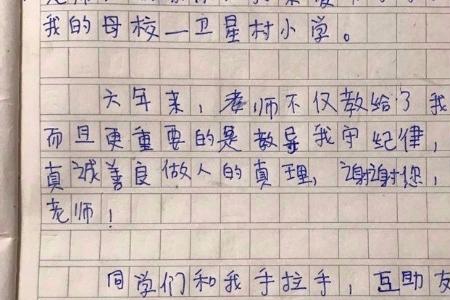 我的母校—卫星村小学。
六年来，老师不仅教给了我
而且更重要的是教导我守纪律，
真诚善良做人的真理，谢谢您，
老师！
同学们和我手拉手，互助友